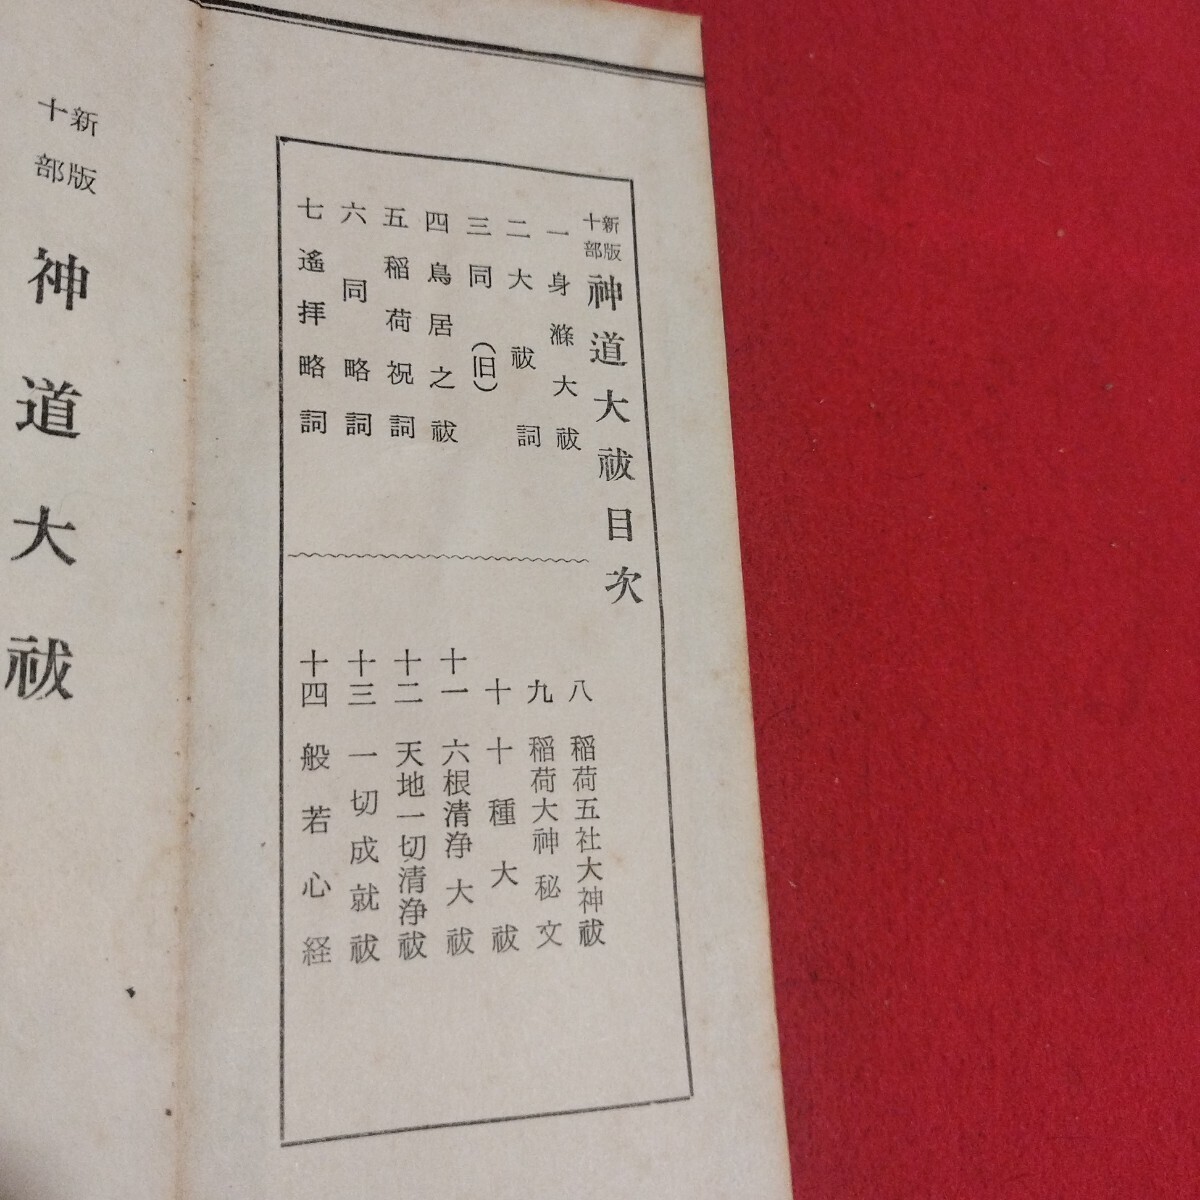 新版
十部
神道大祓目次
一 身滌大祓
二 大祓詞
三 同（旧）
四 鳥居之祓
五 稲荷祝詞
六 同略詞
七 遙拝略詞
八 稲荷五社大神祓
九 稲荷大神秘文
十 十種大祓
十一 六根清浄大祓
十二 天地一切清浄祓
十三 一切成就祓
十四 般若心経
新版
十部
神道大祓